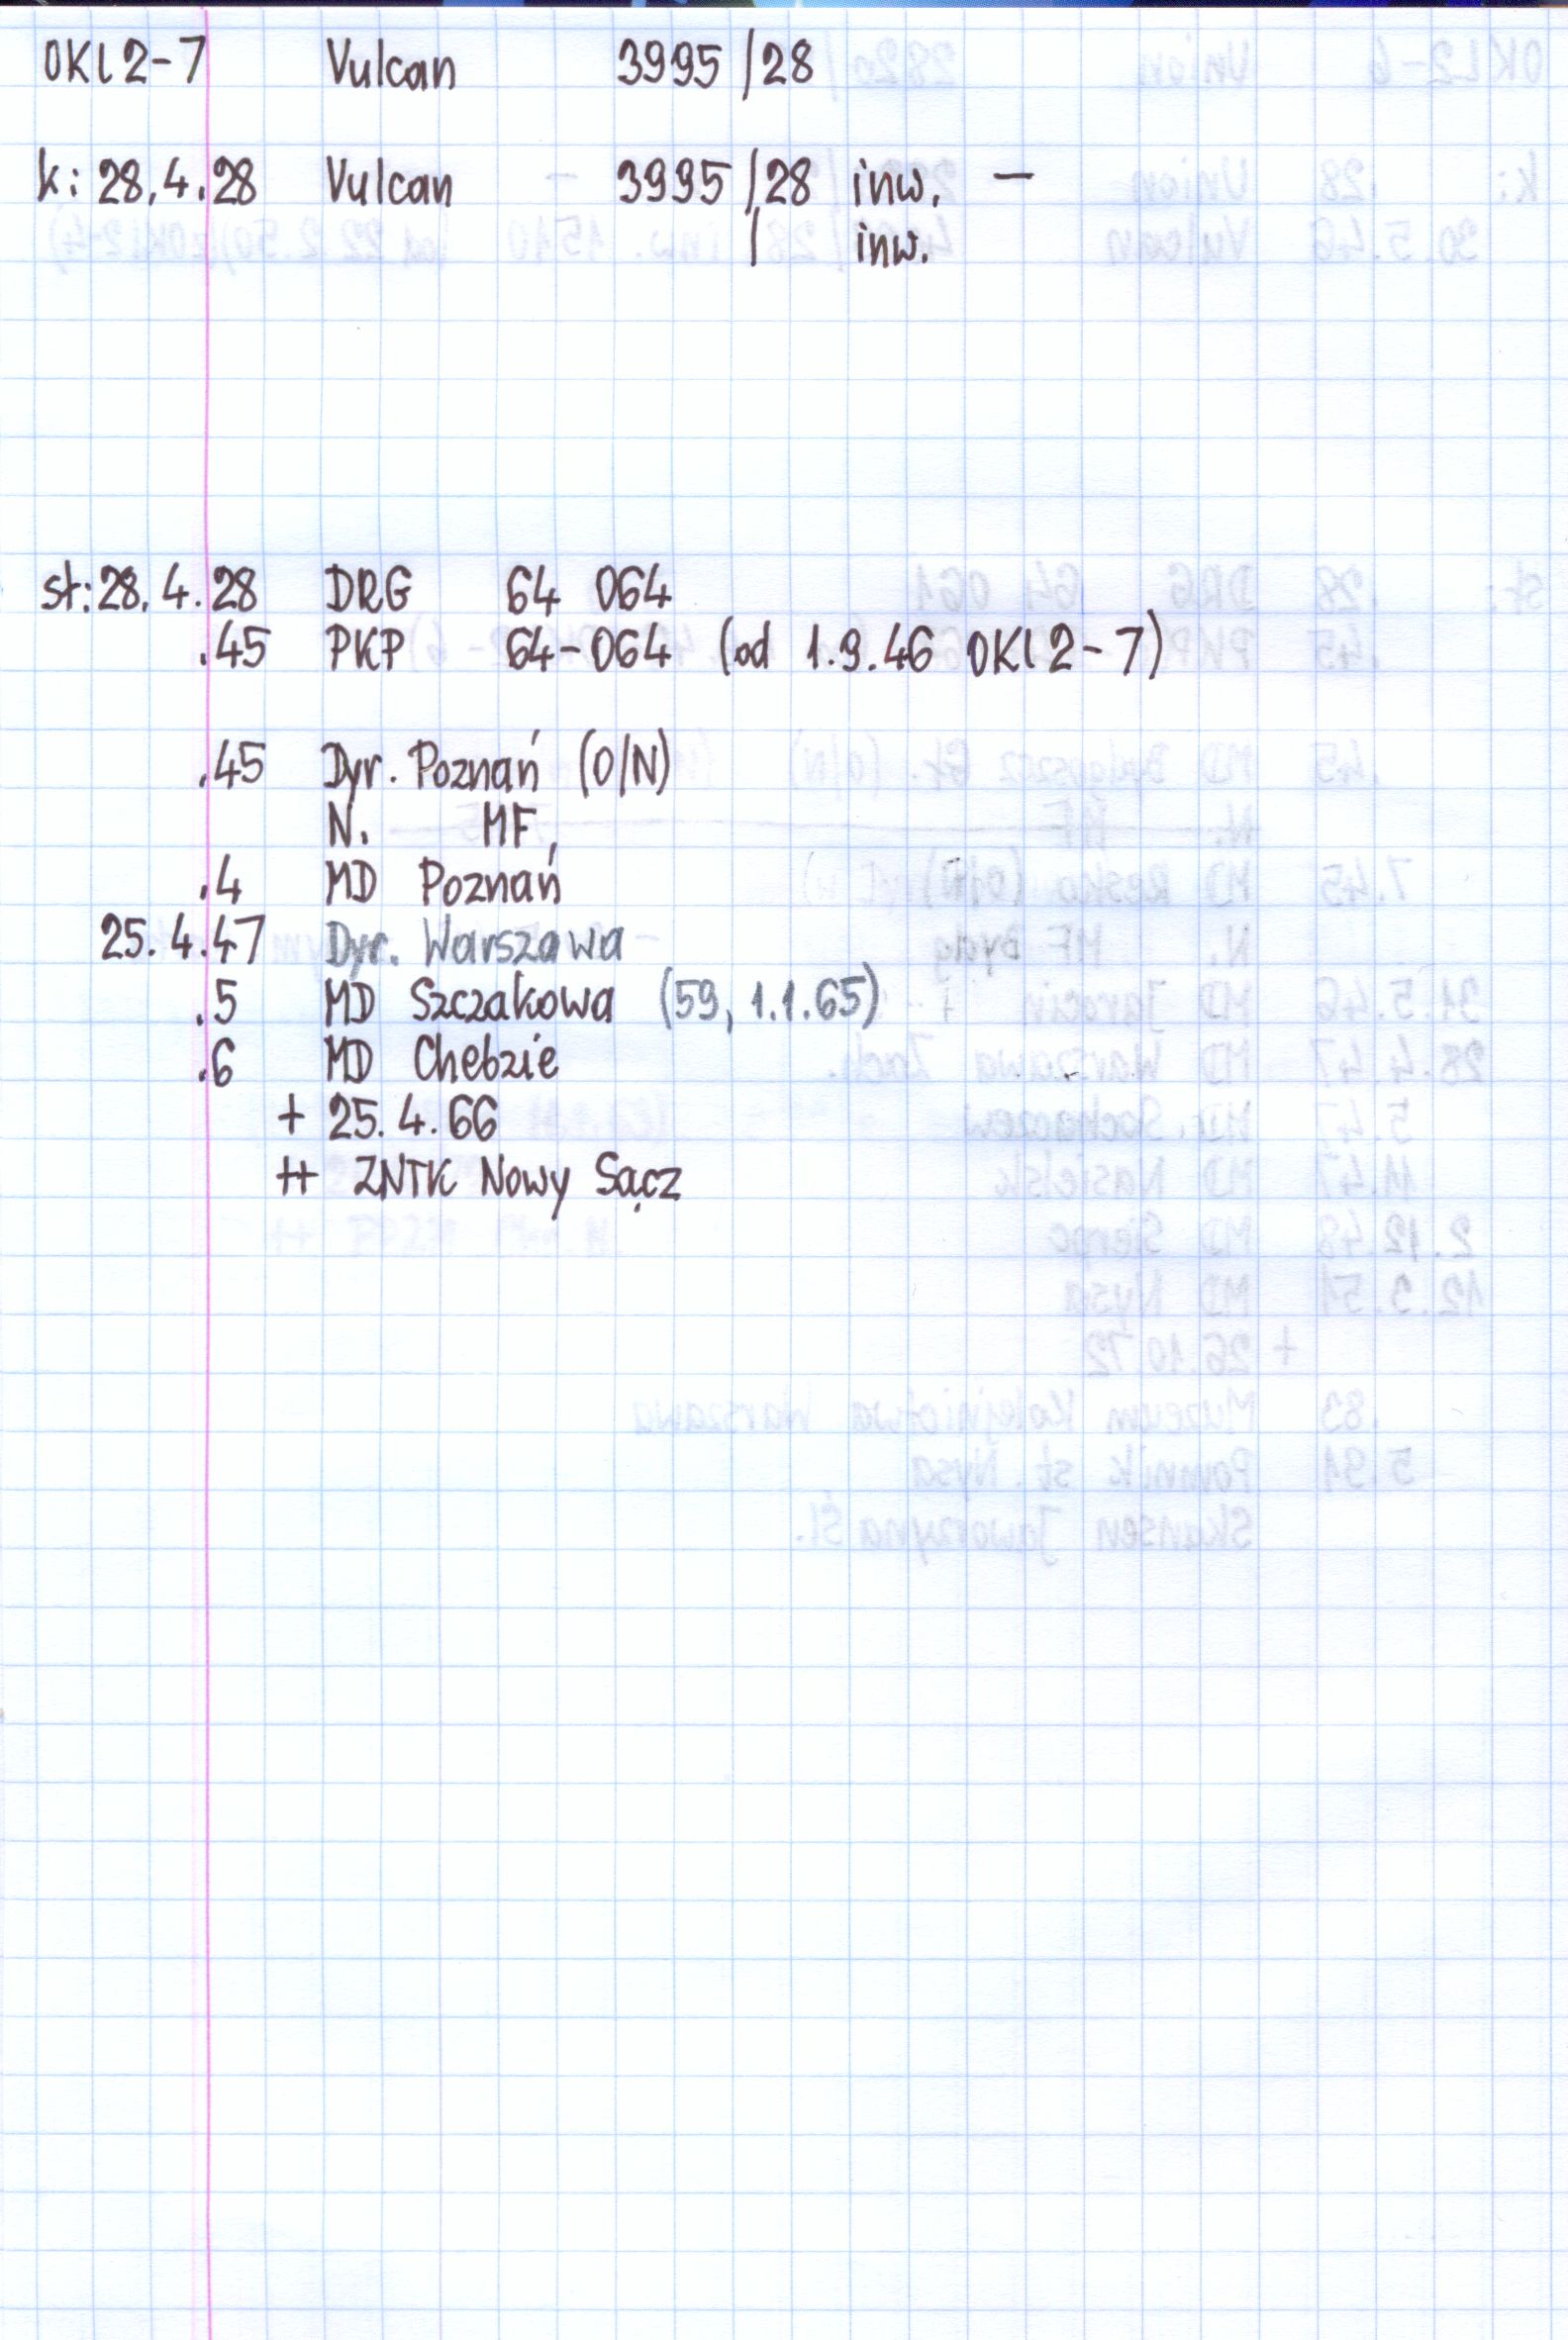 OKl2-7 Vulcan 3995/28
k: 28.4.28 Vulcan 3995/28 inw. -
/ inw.
st: 28.4.28 DRG 64 064
.45 PKP 64-064 (od 1.9.46 OKl2-7)
.45 Dyr. Poznań (O/N)
N. MF,
.4 MD Poznań
25.4.47 Dyr. Warszawa
.5 MD Szczakowa (59, 1.1.65)
.6 MD Chebzie
+ 25.4.66
++ ZNTK Nowy Sącz